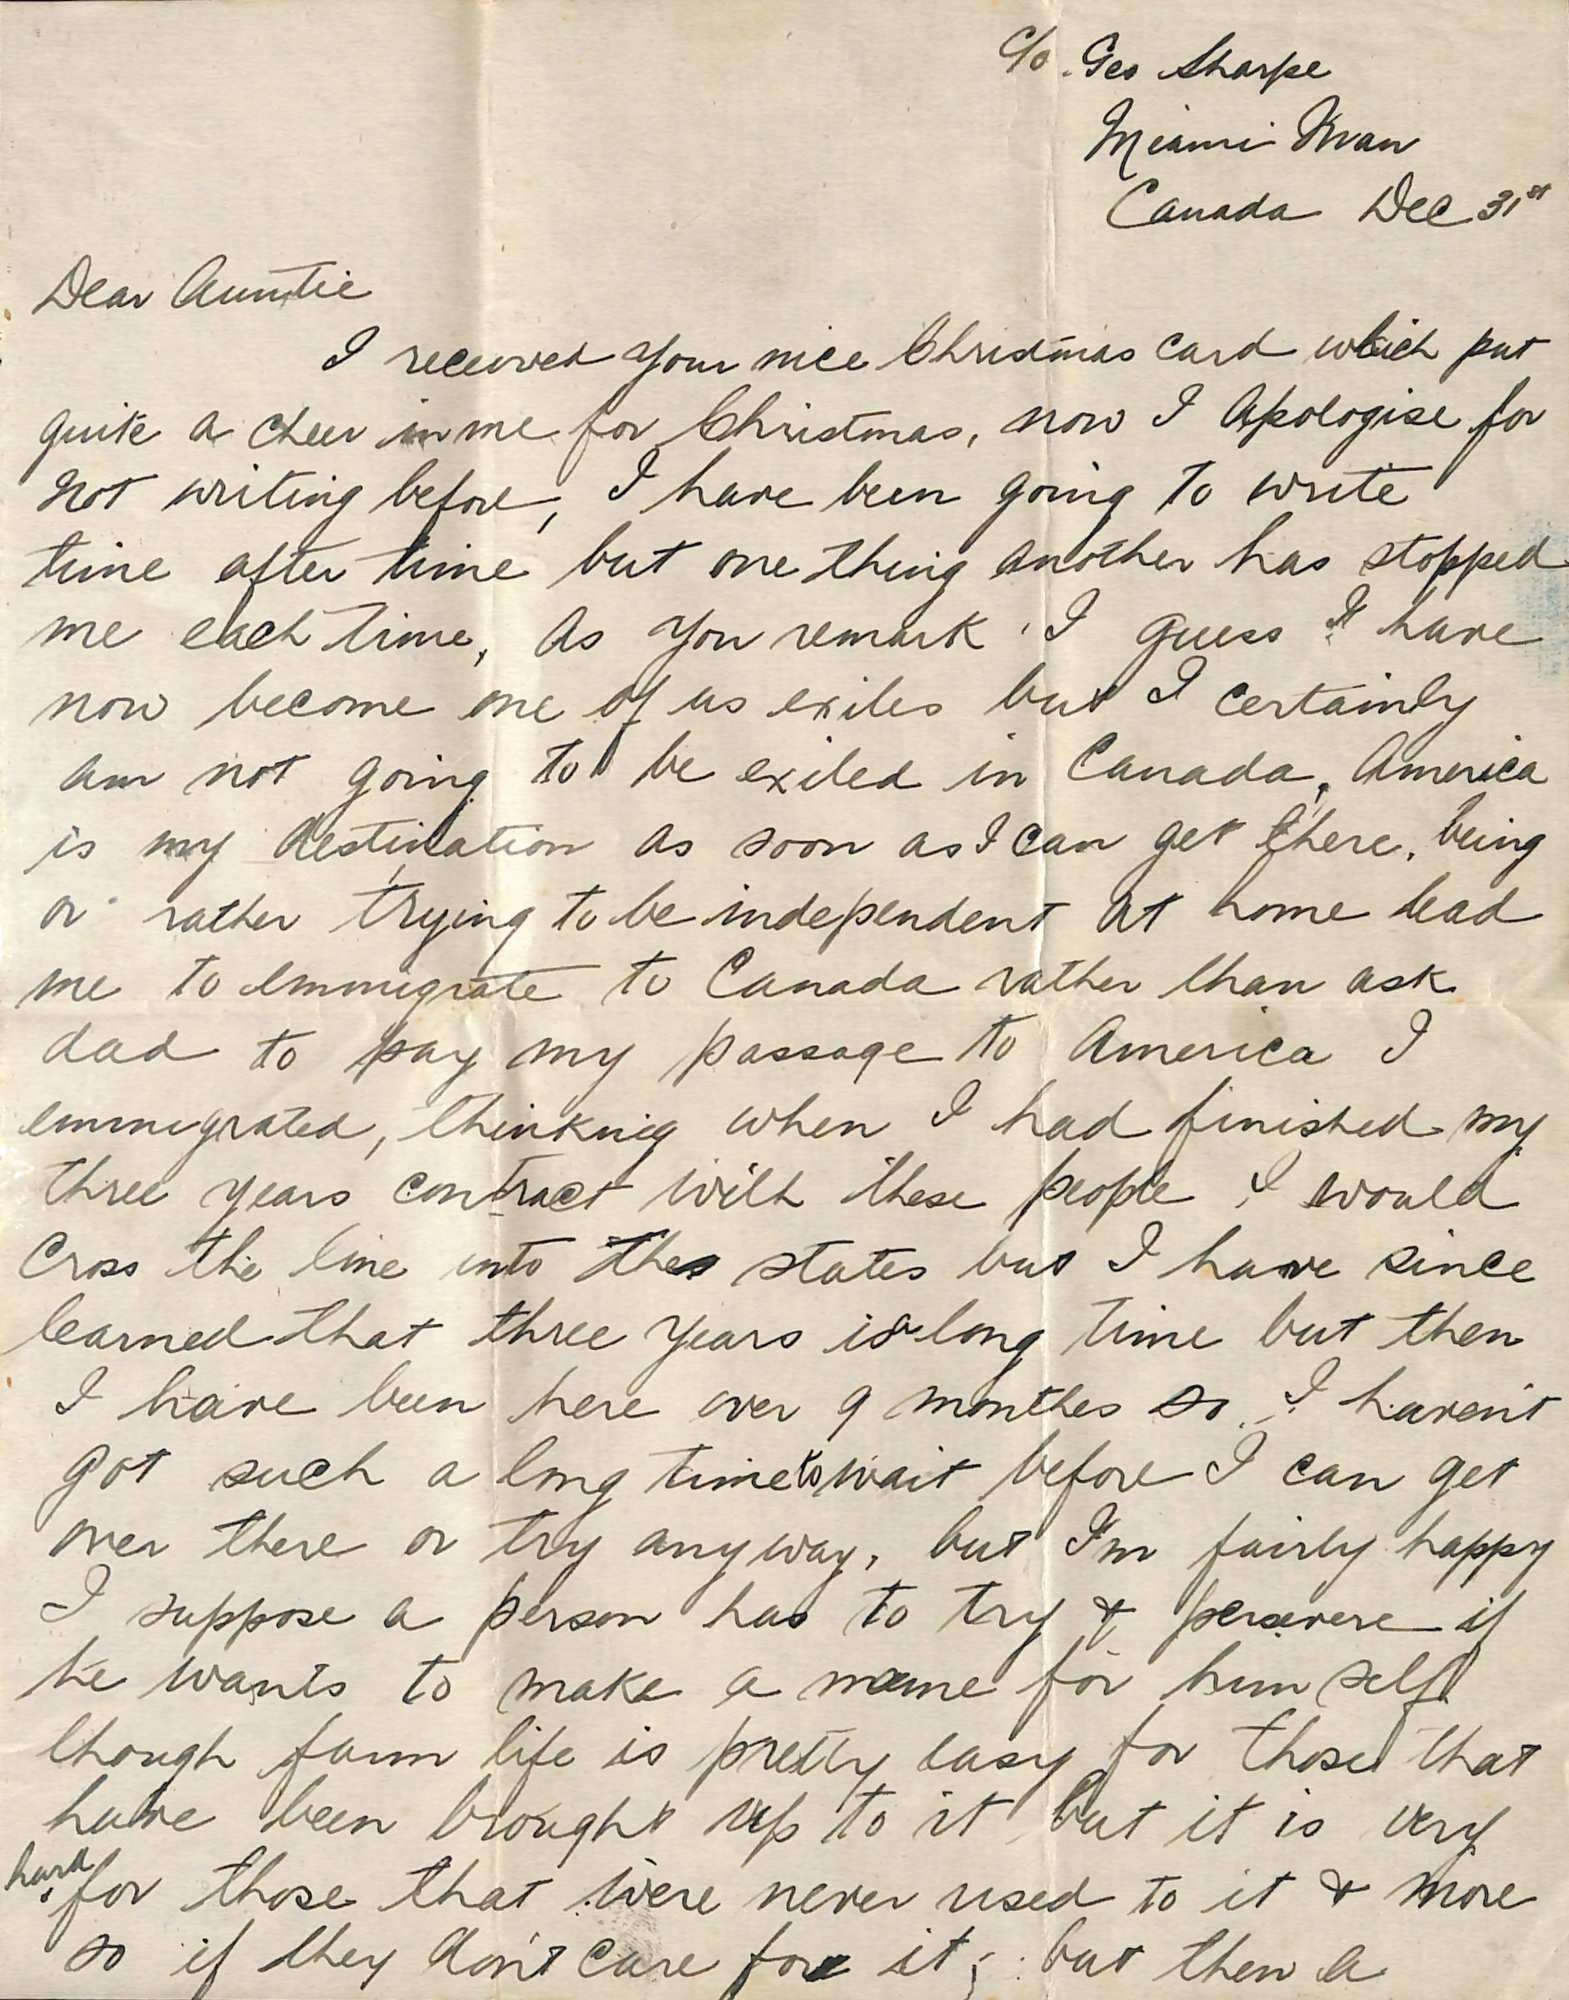 c/o Geo Sharpe
Miami Man
Canada Dec 31st
Dear Auntie
I received your nice Christmas card which put
quite a cheer in me for Christmas, now I Apologise for
not writing before, I have been going to write
time after time but one thing another has stopped
me each time, As you remark I guess I have
now become one of us exiles but I certainly
am not going to be exiled in Canada, America
is my destination as soon as I can get there, being
or rather trying to be independent at home lead
me to emmigrate to Canada rather than ask
dad to pay my passage to America I
emmigrated, thinking when I had finished my
three years contract with these people I would
cross the line into the states but I have since
learned that three years is a long time but then
I have been here over 9 monthes so I haven't
got such a long time to wait before I can get
over there or try anyway, but I'm fairly happy
I suppose a person has to try & persevere if
he wants to make a name for himself
though farm life is pretty easy for those that
have been brought up to it but it is very
hard for those that were never used to it & more
so if they don't care for it; but then a